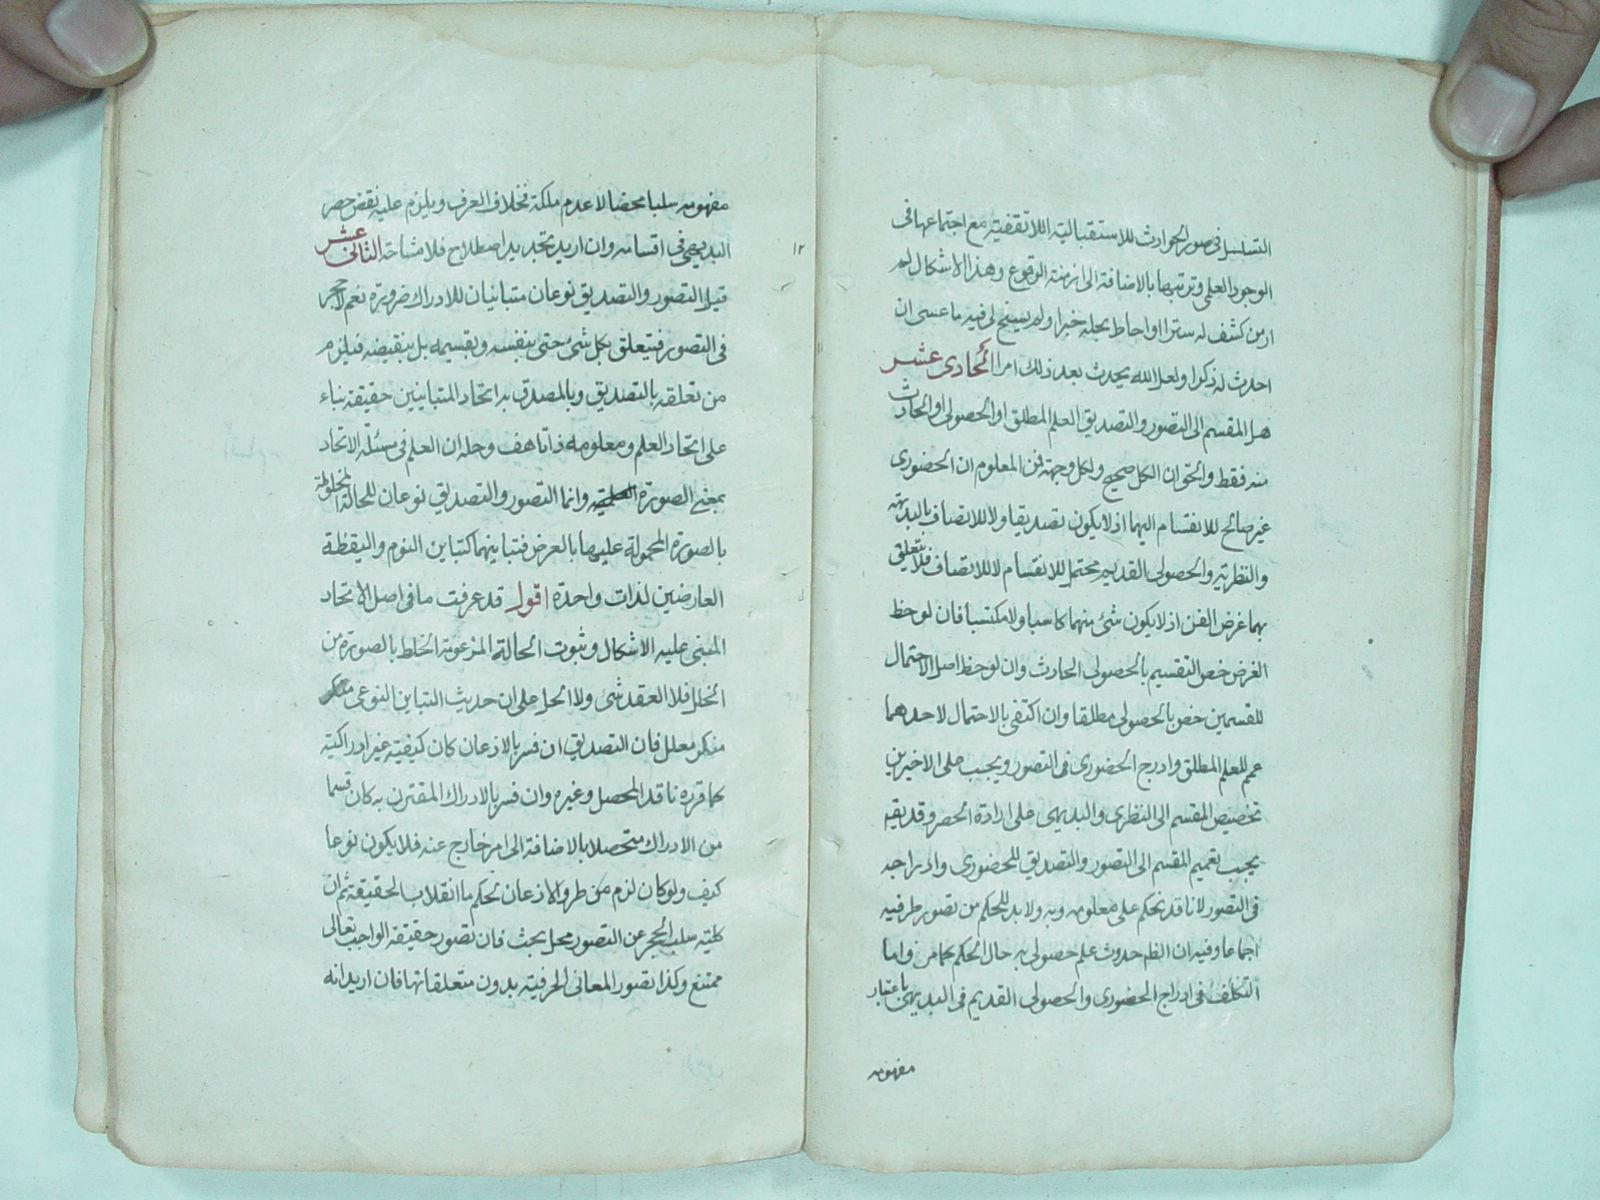 التسلسل فى صور الحوادث للاستقبالية اللاتقفية مع اجتماعها فى
الوجود العلمى وترتبها بالاضافة الى ازمنة الوقوع وهذا الاشكال لم
ار من كشف له سترا او احاط بحله خبرا ولم يسنح لى فيه ما عسى ان
احدث له ذكرا ولعل الله يحدث بعد ذلك امرا الحادى عشر
هل المقسم الى التصور والتصديق العلم المطلق او الحصولى او الحادث
منه فقط والحق ان الكل صحيح ولكل وجهة فمن المعلوم ان الحضورى
غير صالح للانقسام اليهما اذ لا يكون تصديقا ولا للاتصاف بالبديهة
والنظرية والحصولى القديم محتمل للانقسام لا للاتصاف فلا يتعلق
بهما غرض الفن اذ لا يكون شئ منهما كاسبا ولا مكتسبا فان لوحظ
الغرض خص التقسيم بالحصولى الحادث وان لوحظ اصل الاحتمال
للقسمين خص بالحصولى مطلقا وان اكتفى بالاحتمال لاحدهما
عمم للعلم المطلق وادرج الحضورى فى التصور ويجب على الاخيرين
تخصيص المقسم الى النظرى والبديهى على ارادة الحصر وقد يقه
يجب تعميم المقسم الى التصور والتصديق للحضورى وادراجه
فى التصور لانا قد نحكم على معلومه وبه ولا بد للحكم من تصور طرفيه
اجماعا وفيه ان الظم حدوث علم حصولى به حال الحكم كما مر واما
التكلف فى ادراج الحضورى والحصولى القديم فى البديهى باعتبار
مفهومه
مفهومه سلبا محضا لا عدم ملكة فخلاف العرف ويلزم عليه نقض حصر
البديهى فى اقسامه وان اريد تجديد اصطلاح فلا مشاحة الثانى عشر
١٢
قيل التصور والتصديق نوعان متباينان للادراك ضرورة نعم لا حجر
فى التصور فيتعلق بكل شئ حتى بنفسه وبقسيمه بل بنقيضه فيلزم
من تعلقه بالتصديق وبالمصدق به اتحاد المتباينين حقيقة بناء
على اتحاد العلم ومعلومه ذاتا هف وحله ان العلم فى مسئلة الاتحاد
بمعنى الصورة العلمية وانما التصور والتصديق نوعان للحالة المخلوطة
بالصورة المحمولة عليها بالعرض فتباينهما كتباين النوم واليقظة
العارضين لذات واحدة اقول قد عرفت ما فى اصل الاتحاد
المبنى عليه الاشكال وثبوت الحالة المزعومة الخلط بالصورة من
الخلل فلا العقد شئ ولا الحل على ان حديث التباين النوعى
منكر معلل فان التصديق ان فسر بالاذعان كان كيفية غير ادراكية
كما قرره ناقد المحصل وغيره وان فسر بالادراك المقترن به كان قسما
من الادراك متحصلا بالاضافة الى امر خارج عنه فلا يكون نوعا
كيف ولو كان لزم من طرو الاذعان لحكم ما انقلاب الحقيقة ثم ان
كلية سلب الحجر عن التصور محل بحث فان تصور حقيقة الواجب تعالى
ممتنع وكذا تصور المعانى الحرفية بدون متعلقاتها فان اريد انه